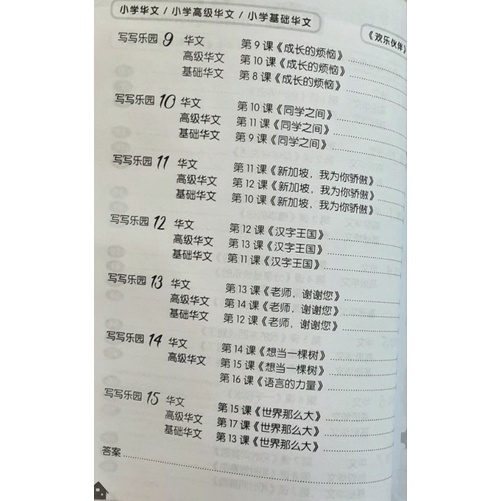 小学华文 / 小学高级华文 / 小学基础华文
《欢乐伙伴》
写写乐园 9 华文 第 9 课《成长的烦恼》
高级华文 第 10 课《成长的烦恼》
基础华文 第 8 课《成长的烦恼》
写写乐园 10 华文 第 10 课《同学之间》
高级华文 第 11 课《同学之间》
基础华文 第 9 课《同学之间》
写写乐园 11 华文 第 11 课《新加坡，我为你骄傲》
高级华文 第 12 课《新加坡，我为你骄傲》
基础华文 第 10 课《新加坡，我为你骄傲》
写写乐园 12 华文 第 12 课《汉字王国》
高级华文 第 13 课《汉字王国》
基础华文 第 11 课《汉字王国》
写写乐园 13 华文 第 13 课《老师，谢谢您》
高级华文 第 14 课《老师，谢谢您》
基础华文 第 12 课《老师，谢谢您》
写写乐园 14 华文 第 14 课《想当一棵树》
高级华文 第 15 课《想当一棵树》
第 16 课《语言的力量》
写写乐园 15 华文 第 15 课《世界那么大》
高级华文 第 17 课《世界那么大》
基础华文 第 13 课《世界那么大》
答案